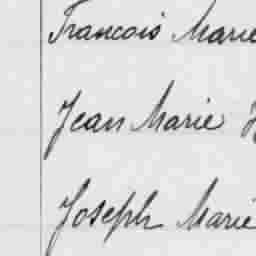 Francois Marie
Jean Marie
Joseph Marie